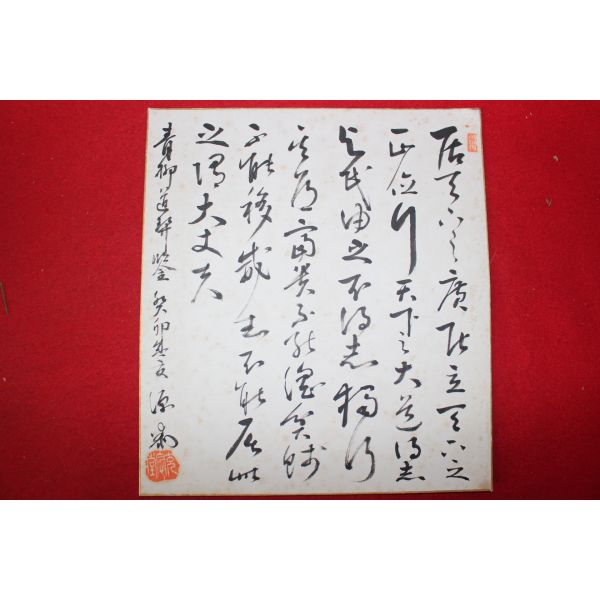 居天下之廣居立天下之
正位行天下之大道得志
与民由之不得志獨行
其道富貴不能淫貧賤
不能移威武不能屈此
之謂大丈夫
青柳道契鑒 癸卯